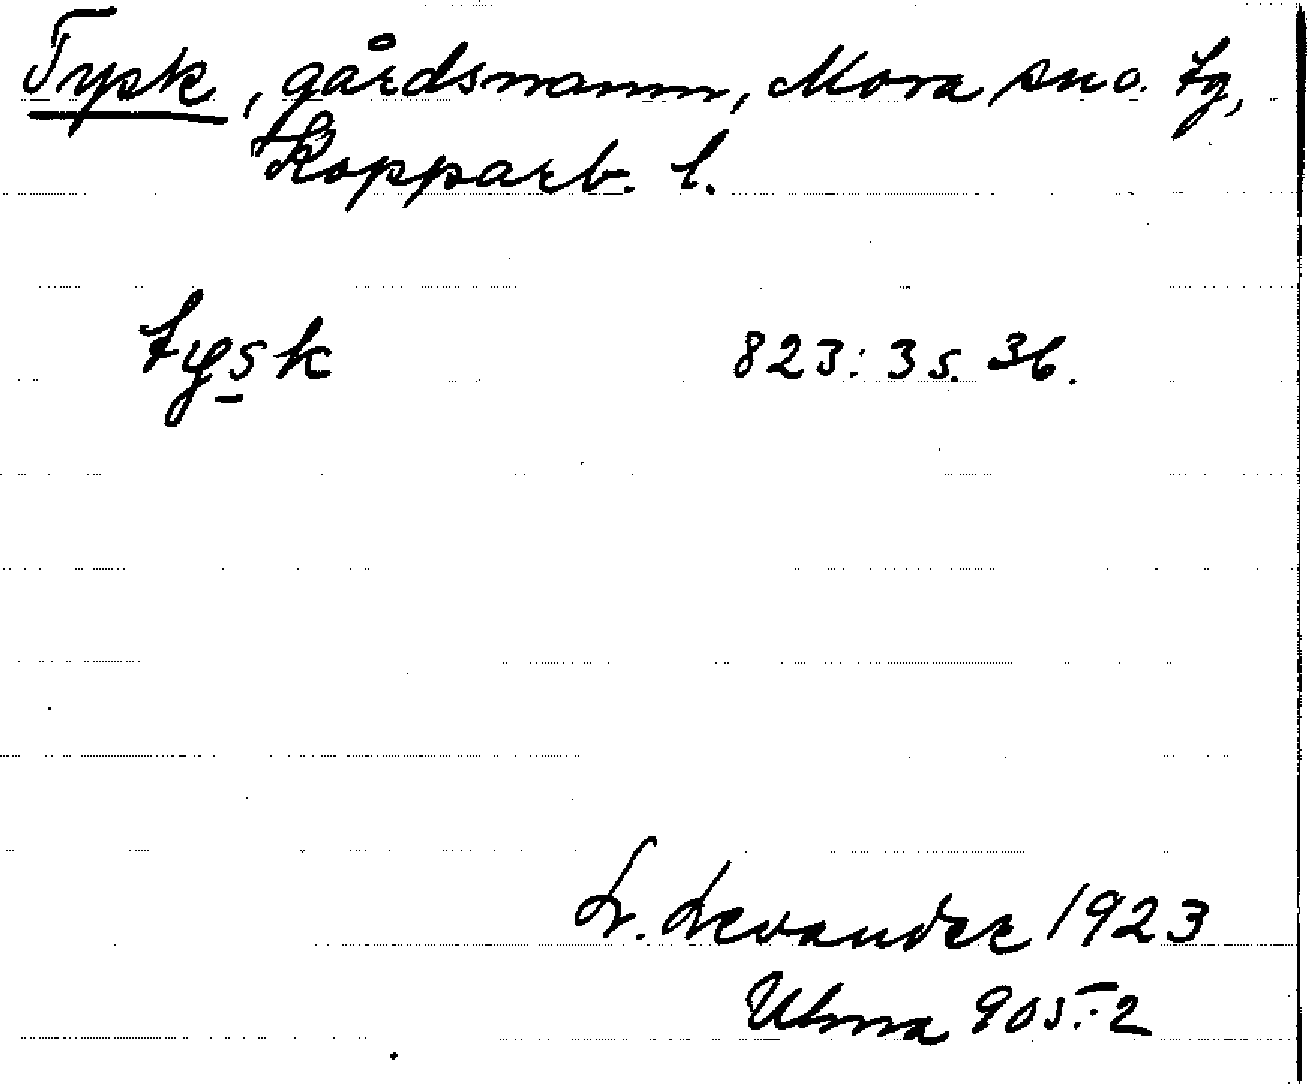 Tysk, gårdsnamn, Mora sn o. tg,
Kopparb. l.
tysk 823: 35. 36.
L. Levander 1923
Ulma 905:2